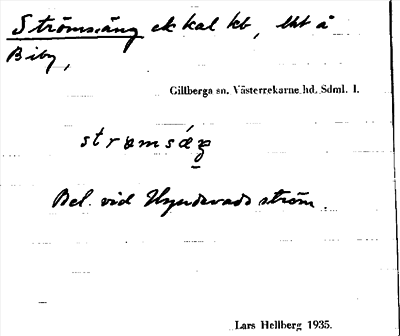 Strömsäng ek kal kb, lht å
Biby,
Gillberga sn. Västerrekarne hd. Sdml. l.
strømsǽŋ
Bel. vid Hyndevads ström.
Lars Hellberg 1935.